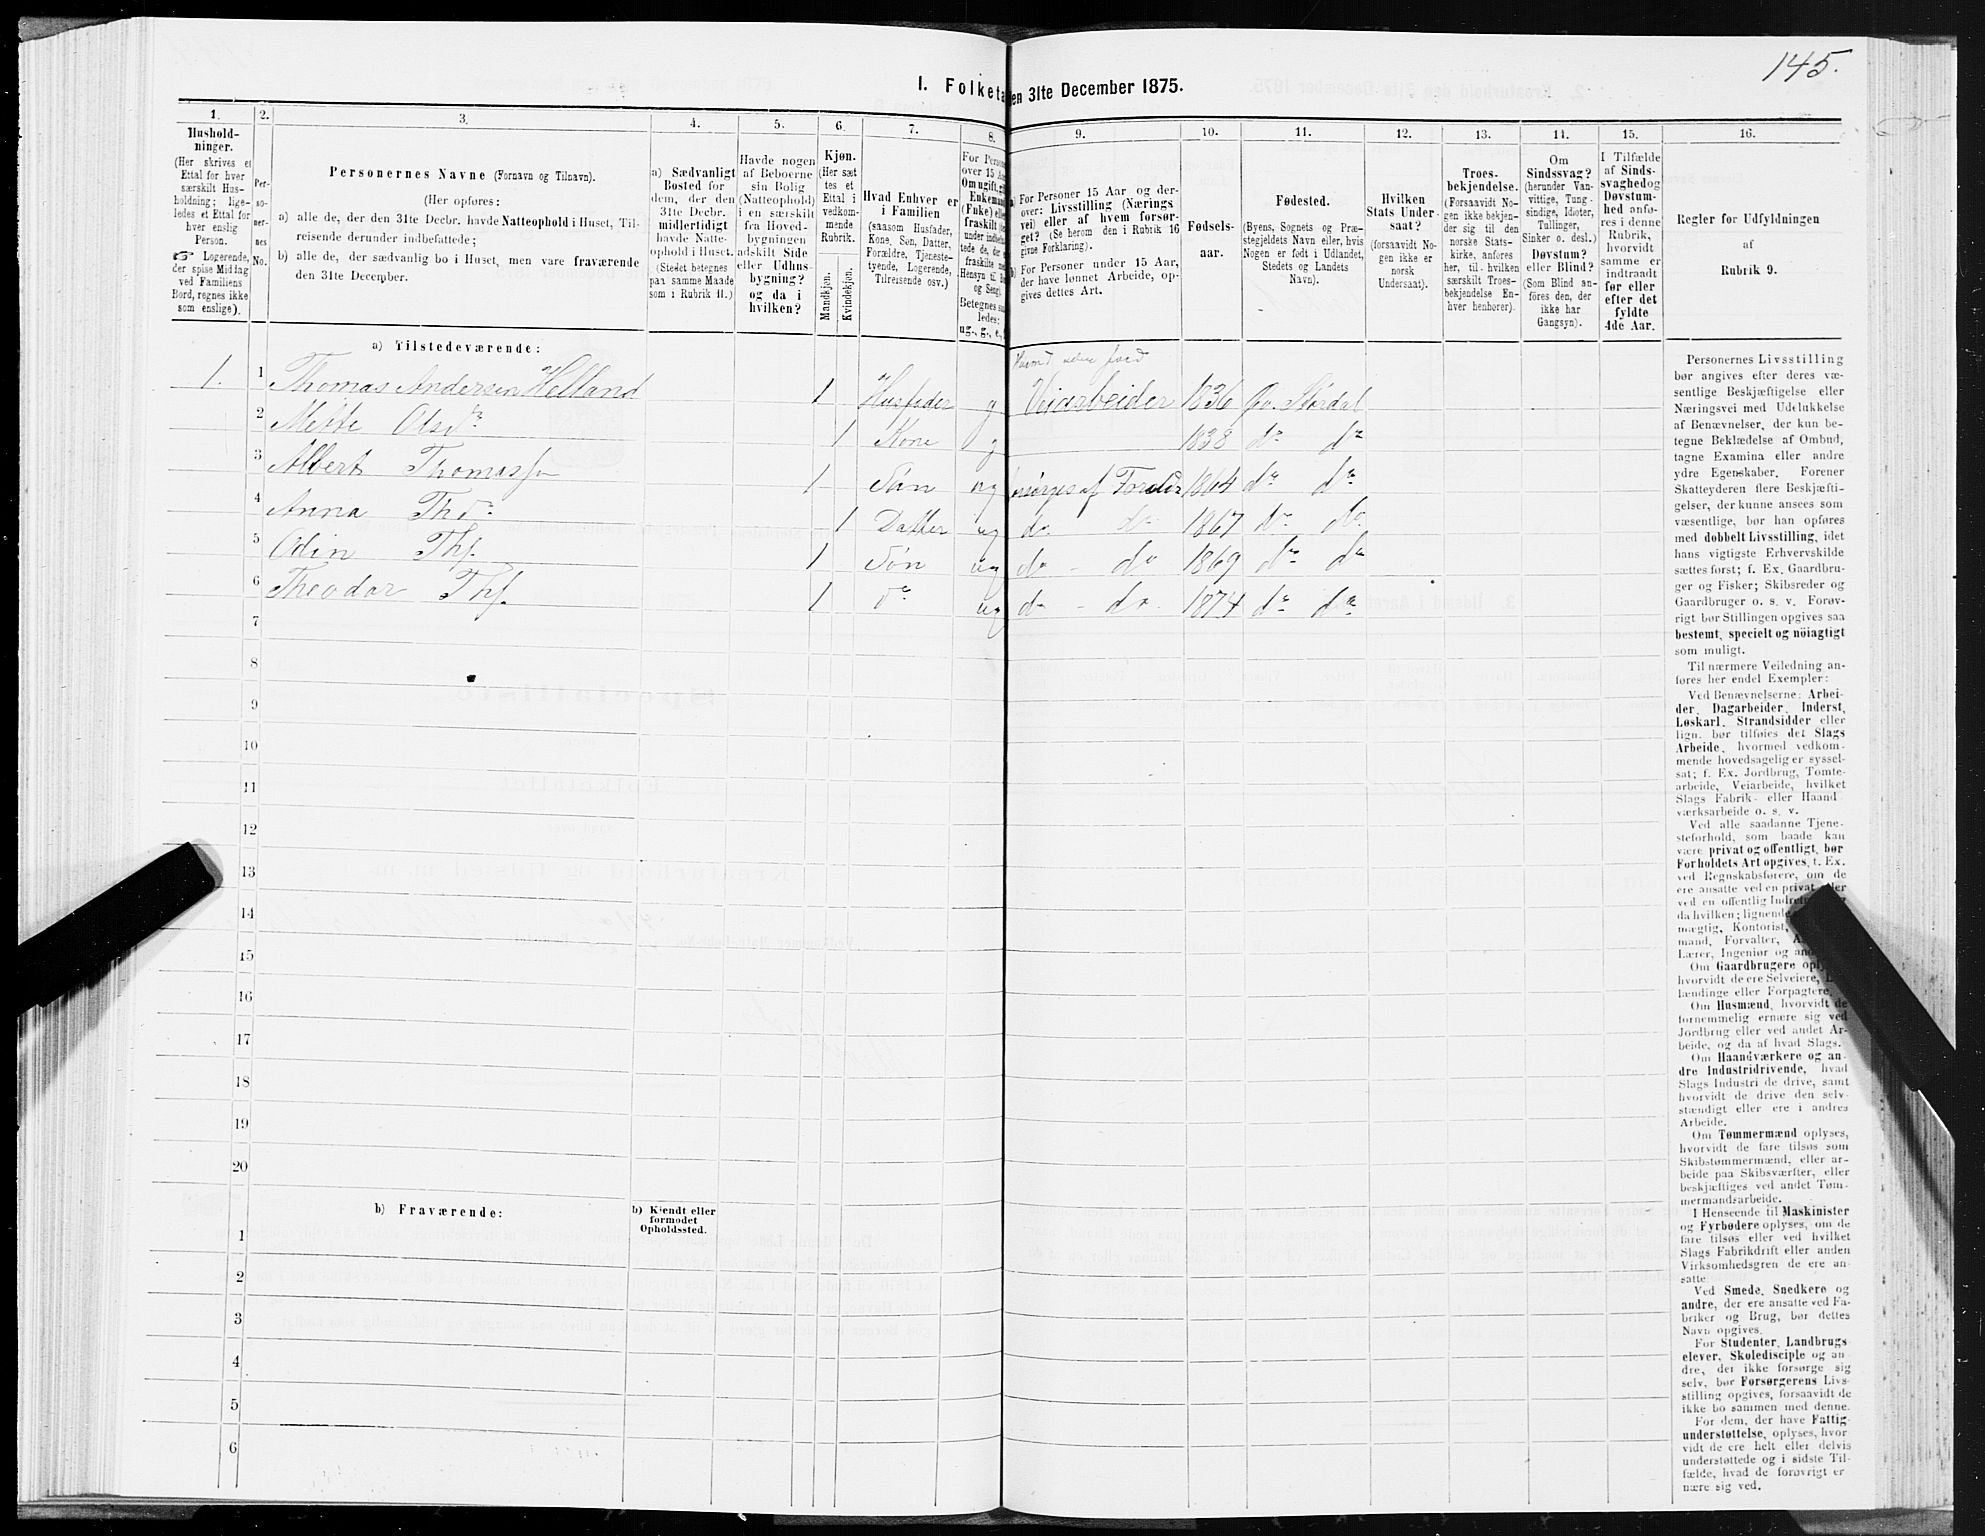 145.
I. Folketa en 31te December 1875.
1. 2. 3. 4. 5. 6. 7. 8. 9. 10. 11. 12. 13. 14. 15. 16.
Hushold-
ninger.
(Her skrives et
Ettal for hver
særskilt Hus-
holdning; lige-
ledes et Ettal for
hver enslig
Person.
☞ Logerende,
der spise Middag
ved Familiens
Bord, regnes ikke
som enslige).
Per-
so-
ner-
nes
No.
Personernes Navne (Fornavn og Tilnavn).
(Her opføres:
a) alle de, der den 31te Decbr. havde Natteophold i Huset, Til-
reisende derunder indbefattede;
b) alle de, der sædvanlig bo i Huset, men vare fraværende
den 31te December.
a) Sædvanligt
Bosted for
dem, der den
31te Decbr.
midlertidigt
havde Natte-
ophold i Huset.
(Stedet betegnes
paa samme Maade
som i Rubrik 11.)
Havde nogen
af Beboerne
sin Bolig
(Natteophold)
i en særskilt
fra Hoved-
bygningen
adskilt Side
eller Udhus-
bygning?
og da i
hvilken?
Kjøn.
(Her sæt
tes et
Ettal i
vedkom-
mende
Rubrik.
Mandkjøn.
Kvindekjøn.
Hvad Enhver er
i Familien
(saasom Husfader,
Kone, Søn, Datter,
Forældre, Tjeneste-
tyende, Logerende,
Tilreisende osv.)
For Person
over 15 Aar
Om ugift, gif
Enkemand
(Enke) elle
fraskilt
under indbe
tede de, der
fraskilte m
Hensyn til B
og Seng).
Betegnes saa
ledes:
ug., g., e.,
a) For Personer 15 Aar og der-
over: Livsstilling (Nærings
vei) eller af hvem forsør-
get? (Se herom den i Rubrik 16
givne Forklaring).
b) For Personer under 15 Aar,
der have lønnet Arbeide, op-
gives dettes Art.
Fødsels-
aar.
Fødested.
(Byens, Sognets og Præ-
stegjeldets Navn eller, hvis
Nogen er født i Udlandet,
Stedets og Landets
Navn).
Hvilken
Stats Under-
saat?
(forsaavidt No-
gen ikke er
norsk
Undersaat).
Troes-
bekjendelse.
(Forsaavidt No-
gen ikke bekjen-
der sig til den
norske Stats-
kirke, anføres
her, til hvilken
særskilt Troes-
bekjendelse En-
hver henhører).
Om
Sindssvag?
(herunder Van-
vittige, Tung-
sindige, Idioter,
Tullinger,
Sinker o. desl.)
Døvstum?
eller Blind?
(Som Blind an-
føres den, der
ikke har
Gangsyn).
I Tilfælde
af Sinds-
svaghed og
Døvstum-
hed anfø-
res i denne
Rubrik,
hvorvidt
samme er
indtraadt
før eller
efter det
fyldte
4de Aar.
Regler for Udfyldningen
af
Rubrik 9.
a) Tilstedeværende:
Husmd uden Jord
1. 1 Thomas Andersen Helland 1 Husfader g Veiarbeider 1836 Øv. Stördal
2 Mette Olsdr 1 Kone g 1838 do do
3 Albert Thomass. 1 Søn ug forsørges af Forældr 1864 do do
4 Anna Thdr 1 Datter ug do do 1867 do do
5 Odin Ths. 1 Søn ug do - do 1869 do do
6 Theodor Ths. 1 do ug do - do. 1874 do do
7
8
9
10
11
12
13
14
15
16
17
18
19
20
b) Fraværende:
b) Kjendt eller
formodet
Opholdssted.
1
2
3
4
5
6
Personernes Livsstilling
bør angives efter deres væ-
sentlige Beskjæftigelse eller
Næringsvei med Udelukkelse
af Benævnelser, der kun be-
tegne Beklædelse af Ombud,
tagne Examina eller andre
ydre Egenskaber. Forener
Skatteyderen flere Beskjæfti-
gelser, der kunne ansees som
væsentlige, bør han opføres
med dobbelt Livsstilling, idet
hans vigtigste Erhvervskilde
sættes først; f. Ex. Gaardbru-
ger og Fisker; Skibsreder og
Gaardbruger o. s. v. Forøv-
rigt bør Stillingen opgives saa
bestemt, specielt og nöiagtigt
som muligt.
Til nærmere Veiledning an-
føres her endel Exempler:
Ved Benævnelserne: Arbei-
der, Dagarbeider, Inderst,
Løskarl, Strandsidder eller
lign. bør tilføies det Slags
Arbeide, hvormed vedkom-
mende hovedsagelig er syssel-
sat; f. Ex. Jordbrug, Tomte-
arbeide, Veiarbeide, hvilket
Slags Fabrik- eller Haand
værksarbeide o. s. v.
Ved alle saadanne Tjene-
steforhold, som baade kan
være privat og offentligt, bør
Forholdets Art opgives, f. Ex.
ved Regnskabsførere, om de
ere ansatte ved en privat eller
ved en offentlig Indret
da hvilken; lignende
mægtig, Kontorist,
mand, Forvalter,
Lærer, Ingeniør og an
Om Gaardbrugere opl
hvorvidt de ere Selveiere,
lændinge eller Forpagtere.
Om Husmænd, hvorvidt de
fornemmelig ernære sig ved
Jordbrug eller ved andet Ar-
beide, og da af hvad Slags.
Om Haandværkere og an-
dre Industridrivende, hvad
Slags Industri de drive, samt
hvorvidt de drive den selv-
stændigt eller ere i andres
Arbeide.
Om Tømmermænd oplyses,
hvorvidt de fare tilsøs som
Skibstømmermænd, eller ar-
beide paa Skibsværfter, eller
beskjæftiges ved andet Tøm-
mermandsarbeide.
I Henseende til Maskinister
og Fyrbødere oplyses, om de
fare tilsøs eller ved hvilket
Slags Fabrikdrift eller anden
Virksomhedsgren de ere an-
satte.
Ved Smede, Snedkere og
andre, der ere ansatte ved Fa-
briker og Brug, bør dettes
Navn opgives.
For Studenter, Landbrugs
elever, Skoledisciple og an-
dre, der ikke forsørge sig
selv, bør Forsørgerens Livs-
stilling opgives, forsaavidt de
ikke bo sammen med denne.
For dem, der have Fattig-
understøttelse, oplyses, hvor-
vidt de ere helt eller delvis
understøttede og i sidste Til-
fælde, hvad de forøvrigt er
nære sig ved.